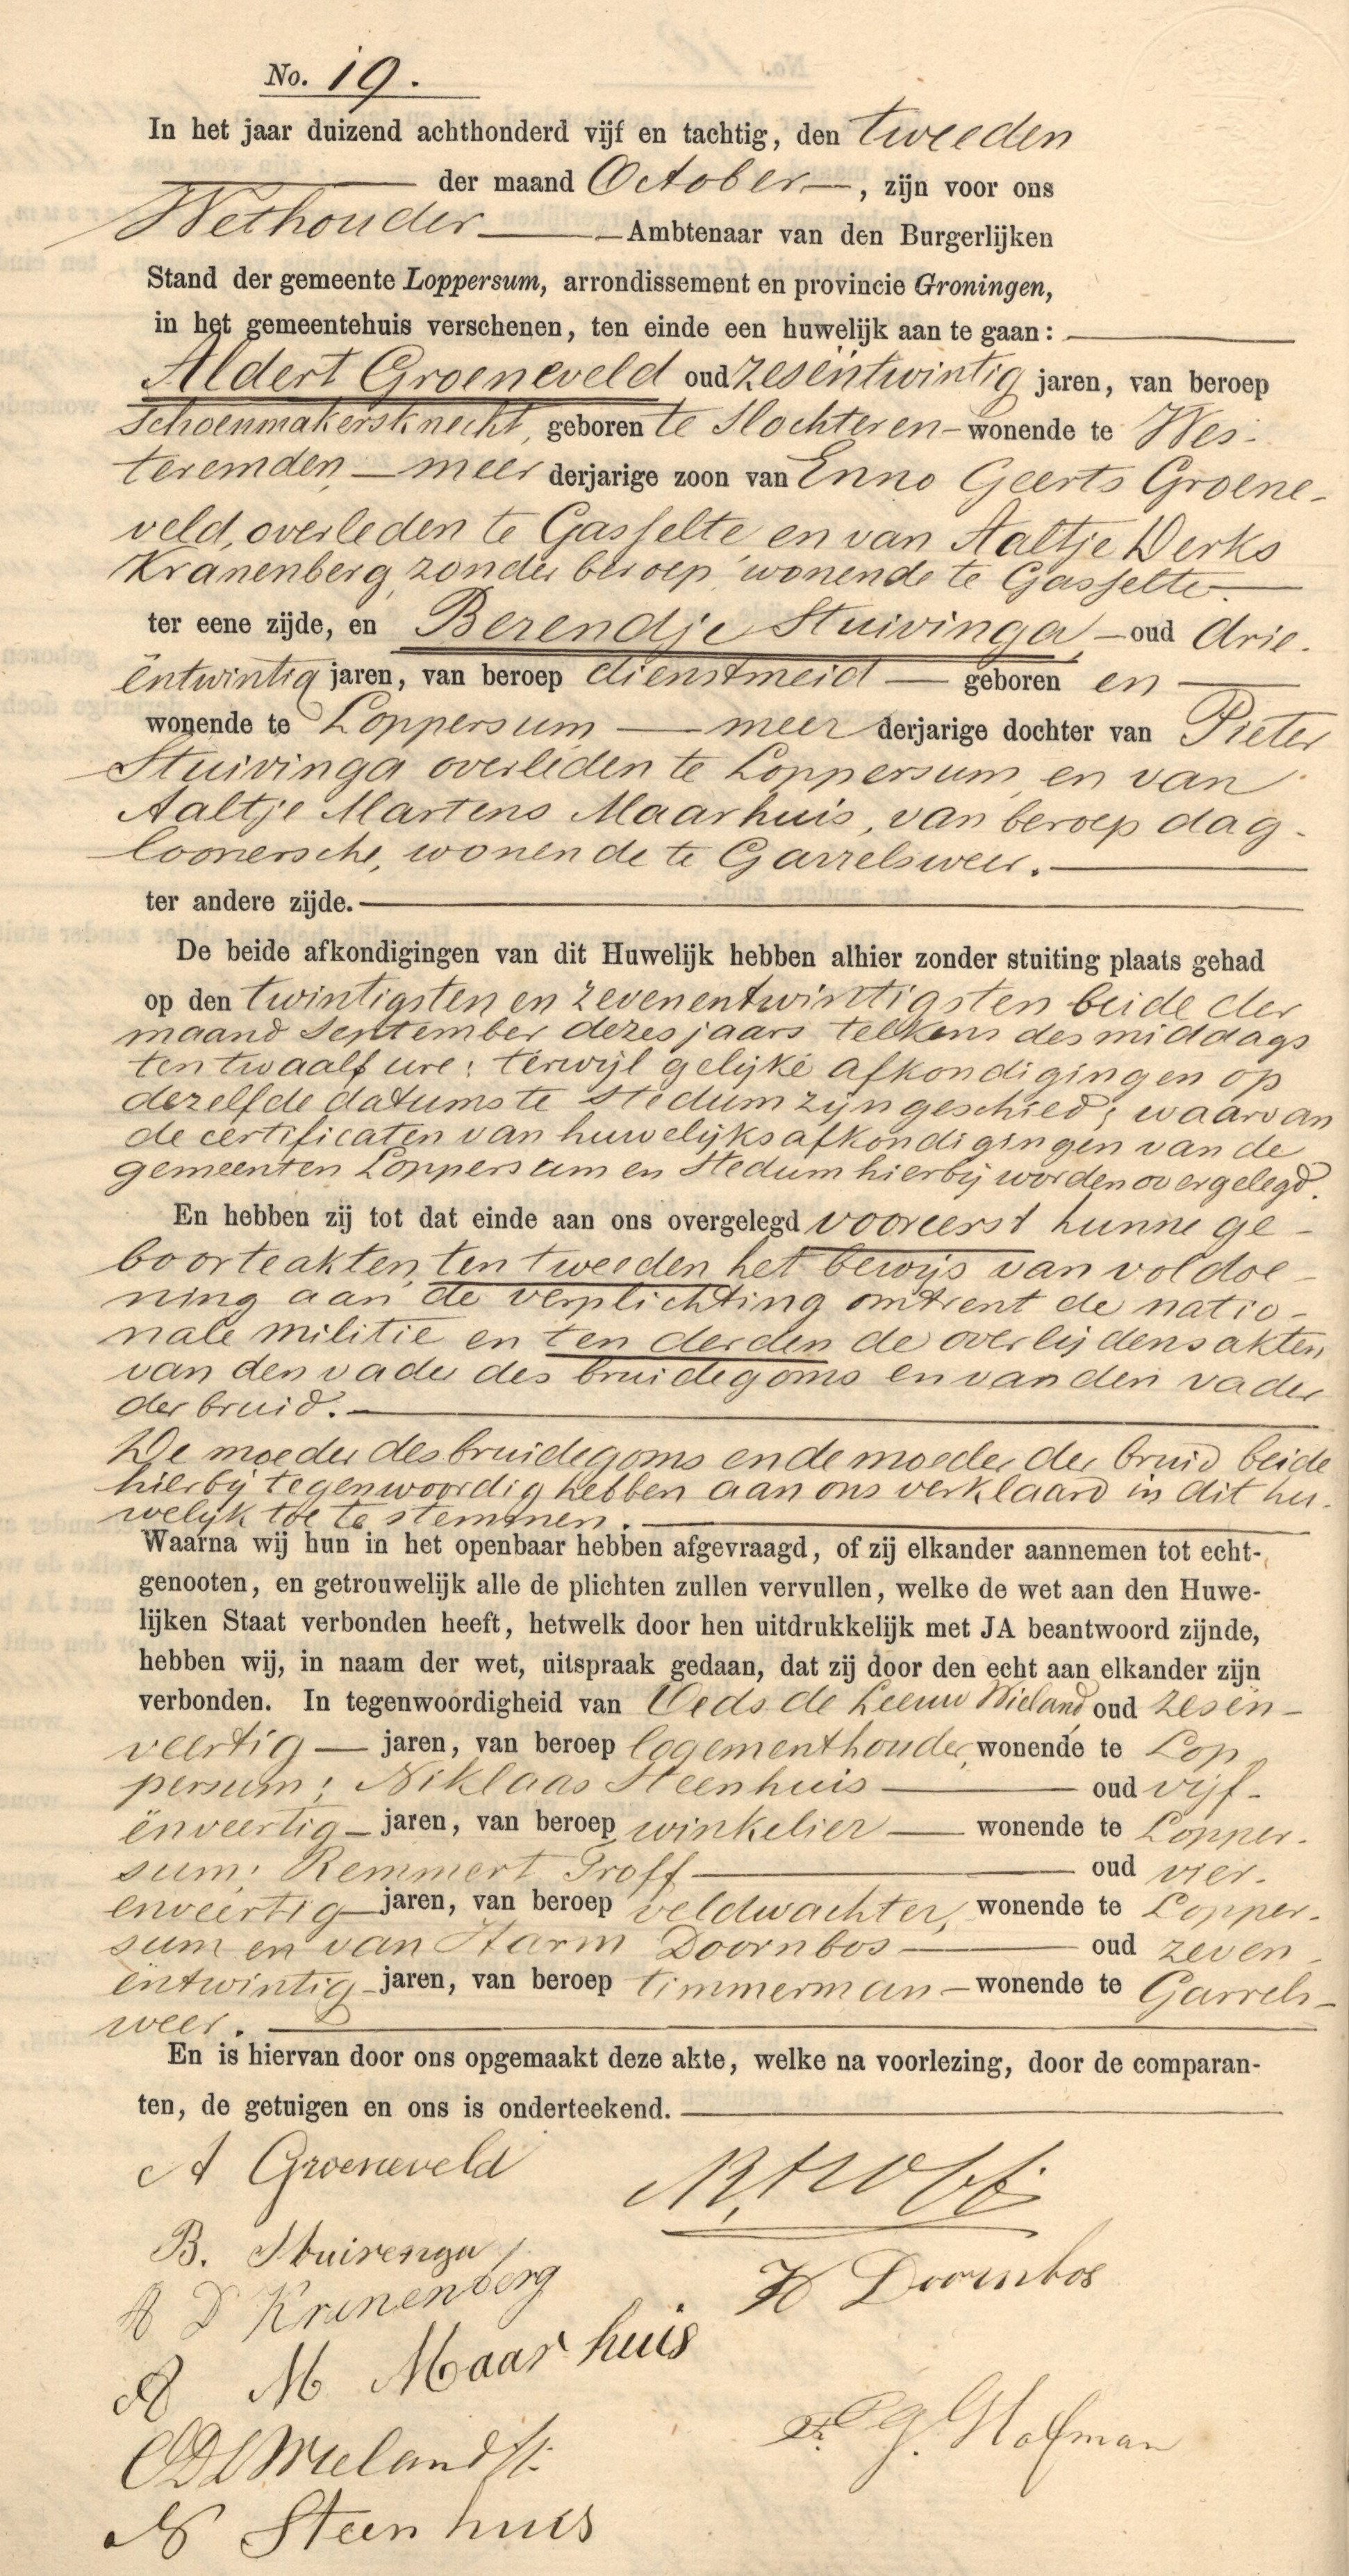 No. 19.
In het jaar duizend achthonderd vijf en tachtig, den tweeden
der maand October, zijn voor ons
Wethouder Ambtenaar van den Burgerlijken
Stand der gemeente Loppersum, arrondissement en provincie Groningen,
in het gemeentehuis verschenen, ten einde een huwelijk aan te gaan:
Aldert Groeneveld oud zesëntwintig jaren, van beroep
Schoenmakersknecht, geboren te Slochteren - wonende te Wes-
teremden, - meer derjarige zoon van Enno Geerts Groene-
veld, overleden te Gasselte en van Aaltje Derks
Kranenberg, zonder beroep, wonende te Gasselte.
ter eene zijde, en Berendje Stuivinga, - oud drie-
ëntwintig jaren, van beroep dienstmeid - geboren en
wonende te Loppersum - meer derjarige dochter van Pieter
Stuivinga overleden te Loppersum, en van
Aaltje Martens Maarhuis, van beroep dag-
loonersche, wonende te Garrelsweer.
ter andere zijde.
De beide afkondigingen van dit Huwelijk hebben alhier zonder stuiting plaats gehad
op den twintigsten en zevenentwintigsten beide der
maand September dezes jaars telkens des middags
ten twaalf ure; terwijl gelijke afkondigingen op
dezelfde datums te Stedum zijn geschied; waarvan
de certificaten van huwelijksafkondigingen van de
gemeenten Loppersum en Stedum hierbij worden overgelegd.
En hebben zij tot dat einde aan ons overgelegd vooreerst hunne ge-
boorteakten, ten tweeden het bewijs van voldoe-
ning aan de verplichting omtrent de natio-
nale militie en ten derden de overlijdensakten
van den vader des bruidegoms en van den vader
der bruid.
De moeder des bruidegoms en de moeder der bruid beide
hierbij tegenwoordig hebben aan ons verklaard in dit hu-
welijk toe te stemmen.
Waarna wij hun in het openbaar hebben afgevraagd, of zij elkander aannemen tot echt-
genooten, en getrouwelijk alle de plichten zullen vervullen, welke de wet aan den Huwe-
lijken Staat verbonden heeft, hetwelk door hen uitdrukkelijk met JA beantwoord zijnde,
hebben wij, in naam der wet, uitspraak gedaan, dat zij door den echt aan elkander zijn
verbonden. In tegenwoordigheid van Oeds de Leeuw Wieland, oud zesën-
veertig - jaren, van beroep logementhouder, wonende te Lop-
persum; Niklaas Steenhuis oud vijf-
ënveertig - jaren, van beroep winkelier - wonende te Lopper-
sum; Remmert Troff oud vier-
enveertig - jaren, van beroep veldwachter, wonende te Lopper-
sum en van Harm Doornbos oud zeven-
ëntwintig - jaren, van beroep timmerman - wonende te Garrels-
weer.
En is hiervan door ons opgemaakt deze akte, welke na voorlezing, door de comparan-
ten, de getuigen en ons is onderteekend.
A Groeneveld
R. Troff
B. Stuivenga
H Doornbos
A D Kranenberg
A M Maarhuis
G. Hofman
ODLWieland
N Steenhuis